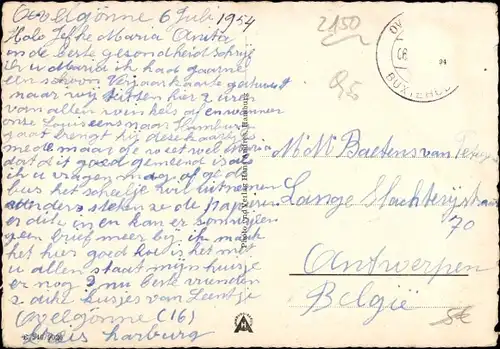 Ovelgönne 6 Juli 1954
Halo Jefke Maria Anita
in de beste gezondheid schrijf
ik u Maria ik had gaarne
een schoon Verjaar kaarte gestuurd
maar wij zitten hier 2 uren
van allen winkels af en wanneer
onze Louis eens naar Hamburg
gaat brengt hij deze kaarten
mede maar ge weet wel Maria
dat dit goed gemeend is
ik u vragen mag of ge de
bus het scheeltje wil uitnemen
anders steken ze de papieren
er dik in en kan er somwijlen
geen brief meer bij ik maak
het hier goed hoe is het met
u allen staat mijn huisje
er nog? nu beste vrienden
2 dikke kusjes van Leentje
Ovelgönne (16)
Kreis harburg
2150
OV
06
54
BUXTEHUDE
M. M. Baetens van
Lange Slachterijstraat
70
Antwerpen
België
5€
Photo und Verlag Hans Andres, Hamburg